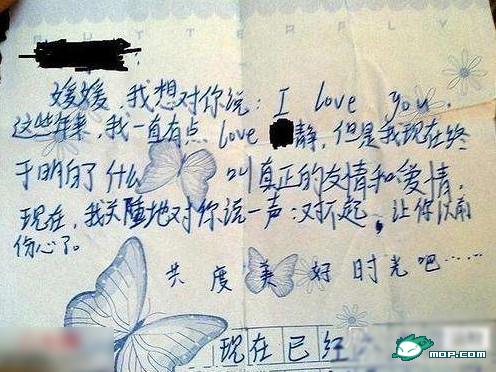 BUTTERFLY
媛媛，我想对你说：I love you，
这些年来，我一直有点 love 静，但是我现在终
于明白了什么叫真正的友情和爱情，
现在，我关隆地对你说一声：对不起，让你以前
伤心了。
共度美好时光吧……
现在已经
MOP.COM